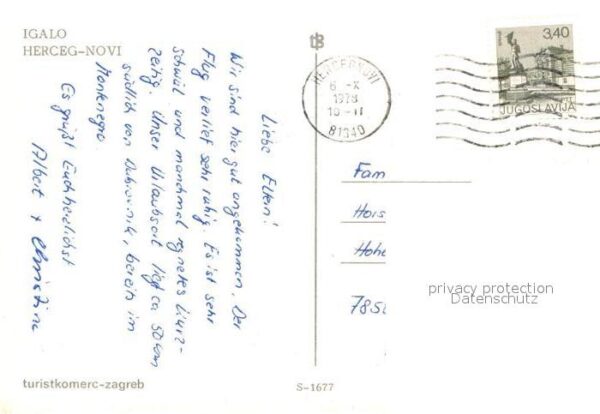 IGALO
HERCEG-NOVI
Liebe Eltern!
Wir sind hier gut angekommen. Der
Flug verlief sehr ruhig. Es ist sehr
schwül und manchmal regnet es kurz-
zeitig. Unser Urlaubsort liegt ca 50 km
südlich von Dubrovnik, bereits im
Montenegro
Es grüßt Euch herzlichst
Albert + Christina
HERCEGNOVI
6 -X
1978
81340
3,40
JUGOSLAVIJA
Fam
Hohe
privacy protection
Datenschutz
turistkomerc-zagreb
S-1677